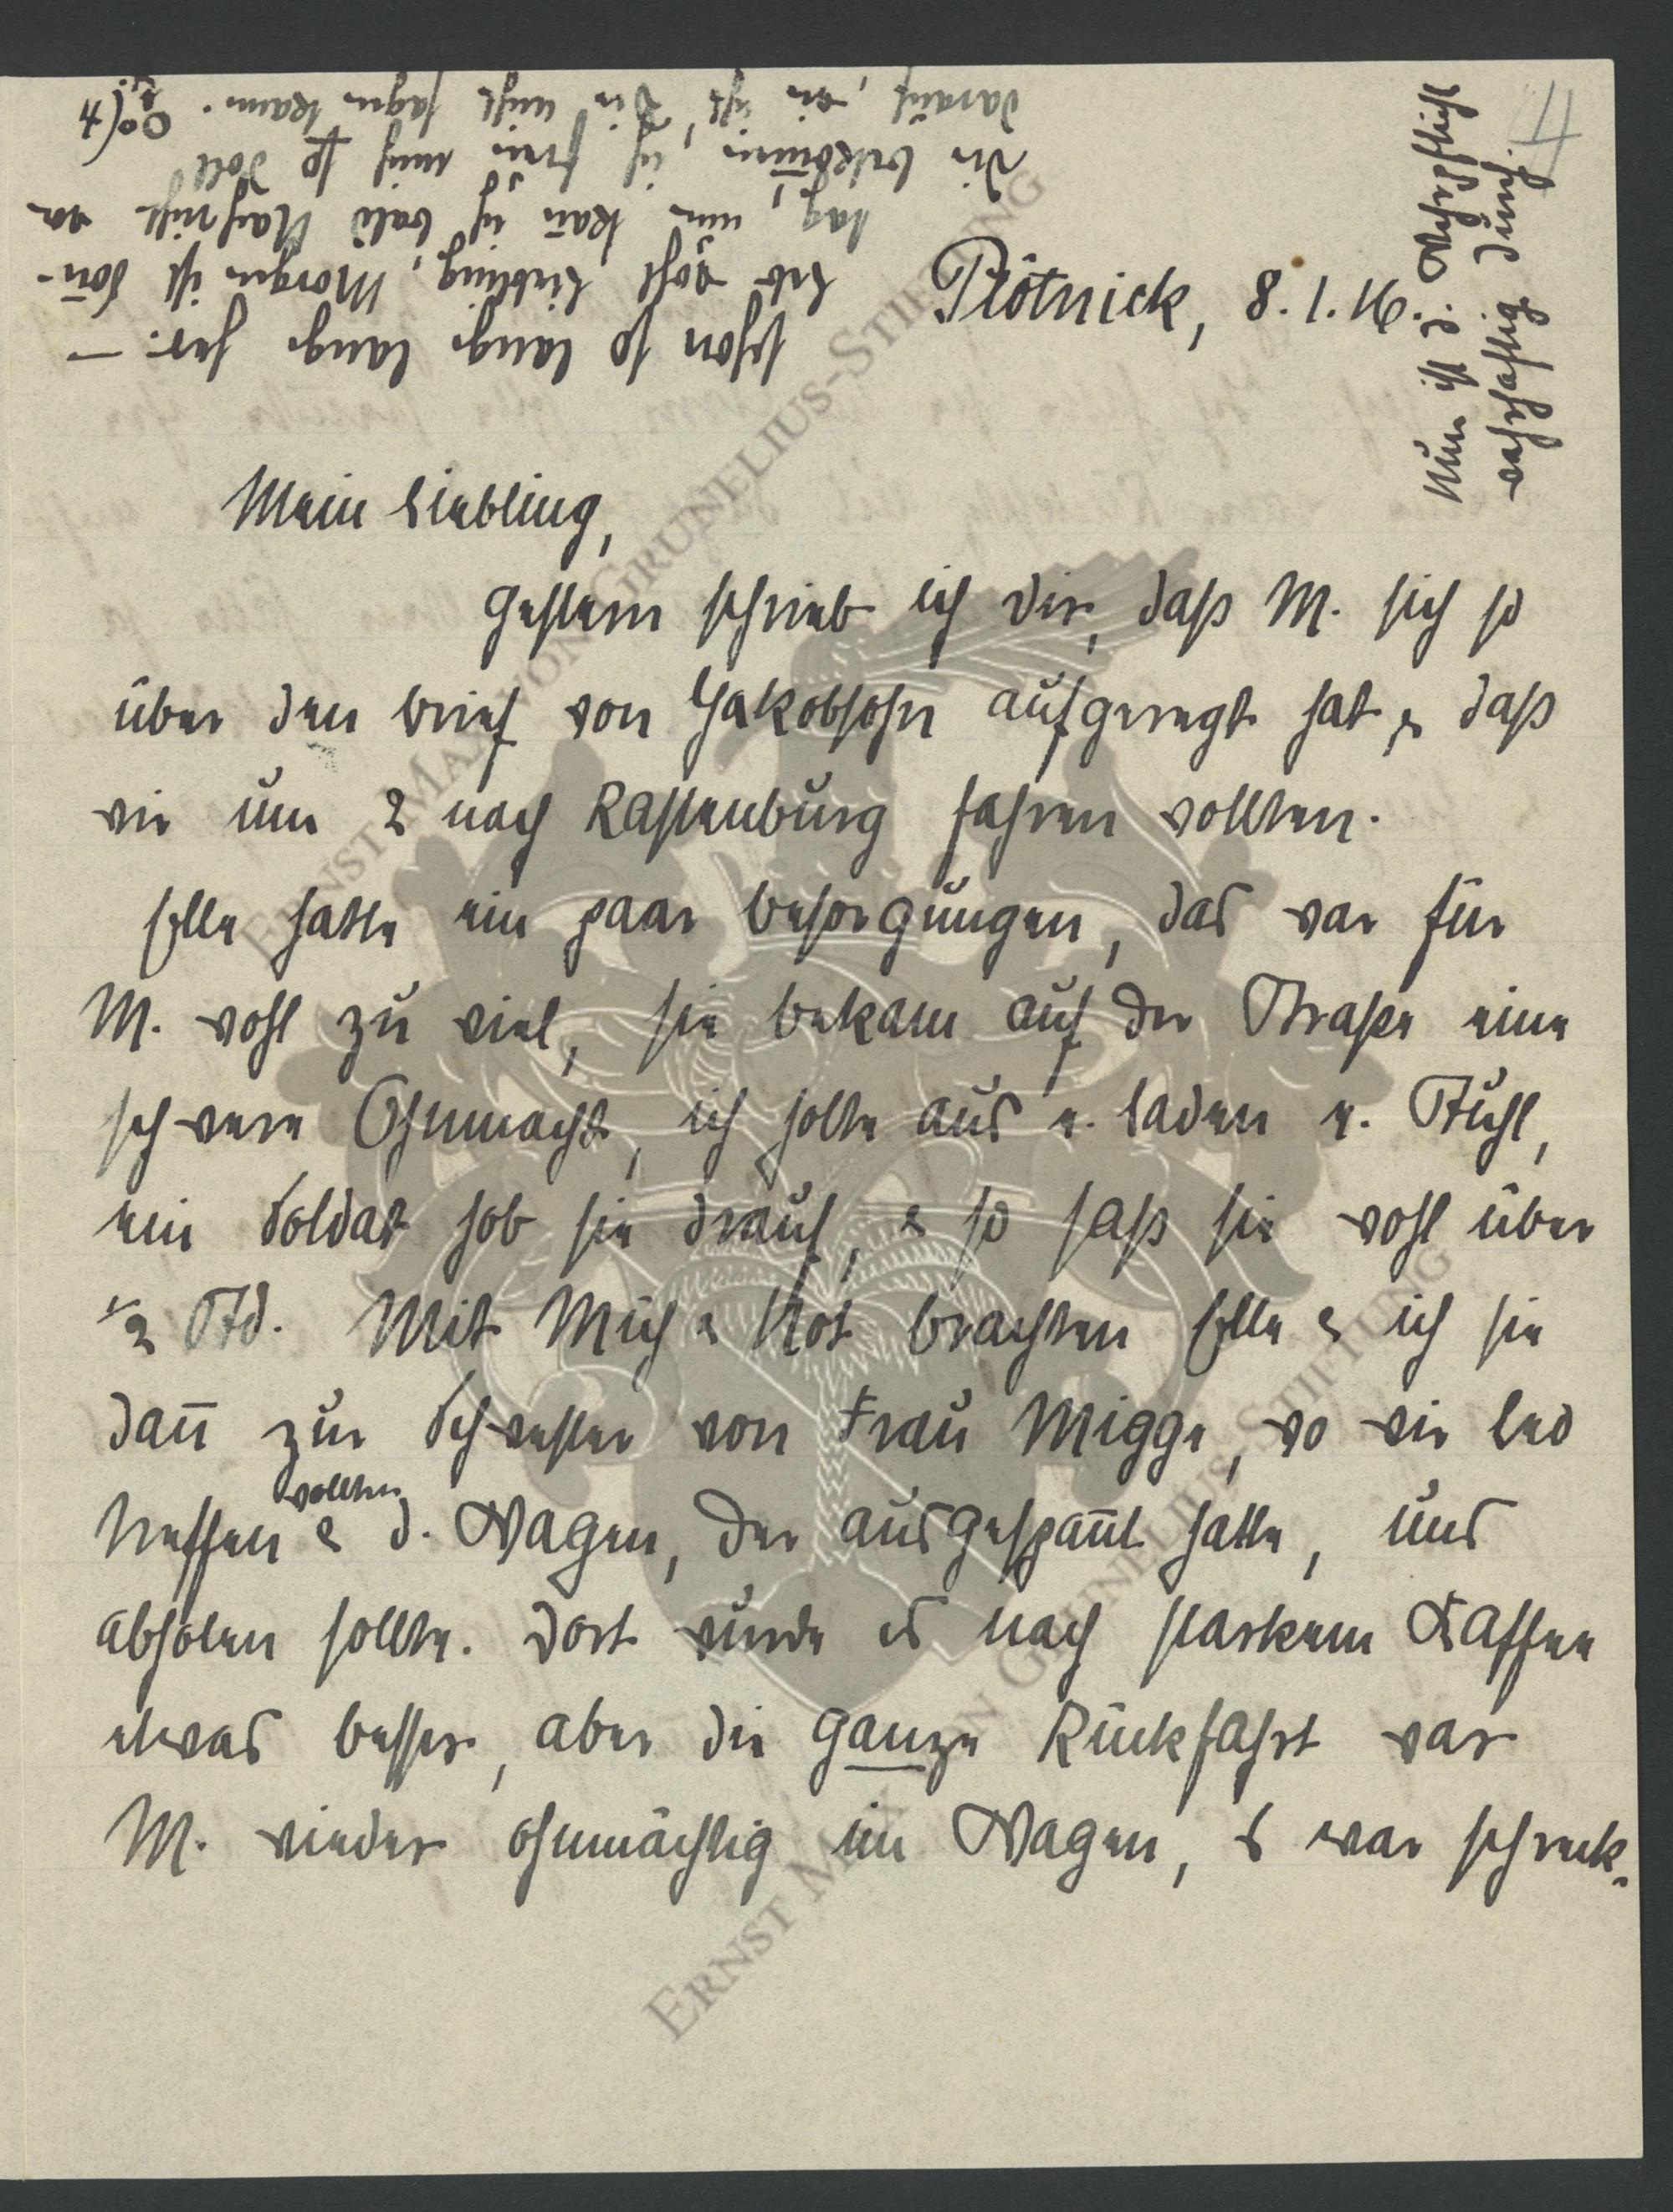 Plötnick, 8.1.16.
Mein Liebling,
Gestern schrieb ich Dir, daß M. sich so
über den Brief von Jakobsohn aufgeregt hat, & daß
wir um 2 nach Rastenburg fahren wollten.
Elle hatte ein paar Besorgungen, das war für
M. wohl zu viel, sie bekam auf der Straße eine
schwere Ohnmacht, ich holte aus e. Laden e. Stuhl,
ein Soldat hob sie drauf, & so saß sie wohl über
1/2 Std. Mit Müh & Not brachten Elle & ich sie
dañ zur Schwester von Frau Migge, wo wir Leo
treffen wollten & d. Wagen, der ausgespañt hatte, uns
abholen sollte. Dort wurde es nach starkem Kaffee
etwas besser, aber die ganze Rückfahrt war
M. wieder ohnmächtig im Wagen, es war schreck-
schon so lange lange her. —
Leb wohl Liebling, Morgen ist Soñ-
tag, nun kañ ich bald Nachricht von
Dir bekom̄en, ich freu mich so doll
darauf, wie ich's Dir nicht sagen kann.
Nun ist d. Wehrpflicht
wahrhaftig durch.
4
ERNST MAX VON GRUNELIUS-STIFTUNG
ERNST MAX VON GRUNELIUS-STIFTUNG